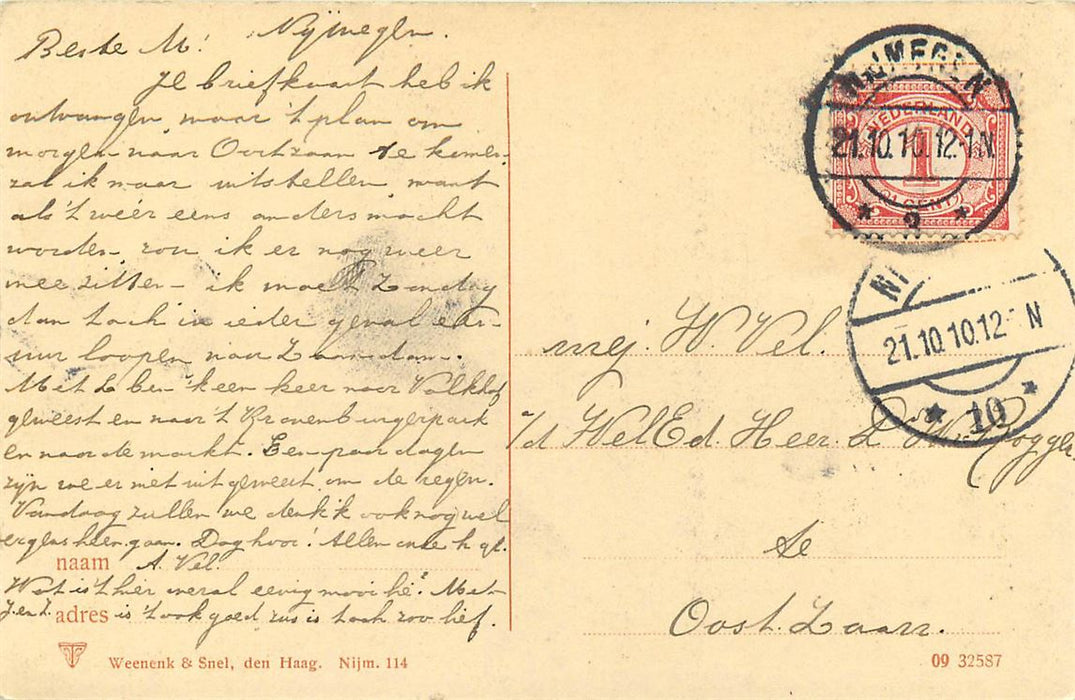 Beste M! Nijmegen.
Je briefkaart heb ik
ontvangen, maar 't plan om
morgen naar Oostzaan te komen
zal ik maar uitstellen, want
als 't wéér eens anders mocht
worden zou ik er nog weer
mee zitten – ik moet Zondag
dan toch in ieder geval een
uur loopen naar Zaandam.
Met Z ben 'k een keer naar Valkhof
geweest en naar 't Kronenburgerpark
en naar de markt. Een paar dagen
zijn we er niet uit geweest om de regen.
Vandaag zullen we denk 'k ook nog wel
ergens heen gaan. Dag hoor! Allen h. gr.
naam A. Vel.
Wat is 't hier overal eenig mooi hè? Met
J. en Z. adres is 't ook goed, zus is toch zoo lief.
Weenenk & Snel, den Haag. Nijm. 114
NIJMEGEN
21.10.10.12-1N
* 9 *
NEDERLAND
1
CENT
NI
21.10.10.12- N
* 10 *
mej. W. Vel.
/d WelEd. Heer
te
Oost Zaan.
09 32587